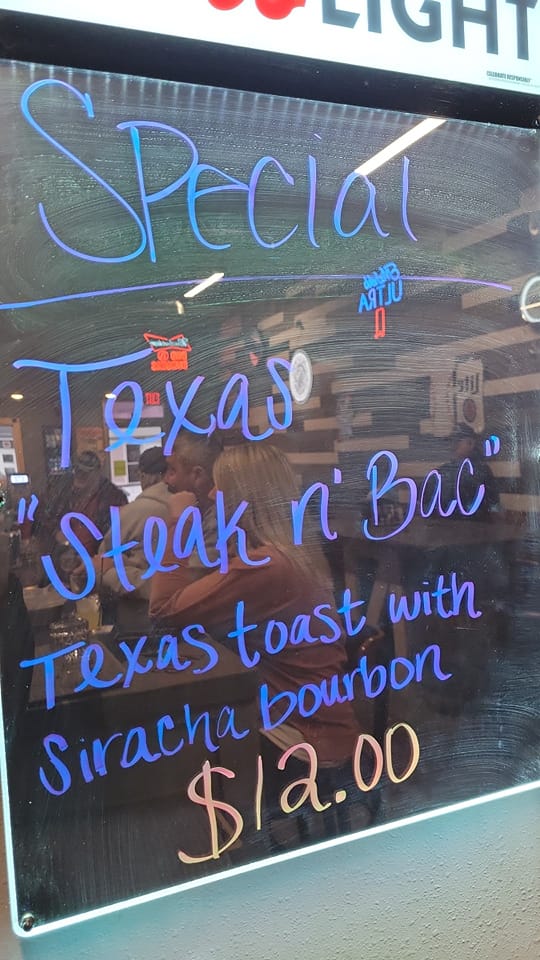 LIGHT
CELEBRATE RESPONSIBLY
Special
ULTRA
Texas
"Steak n' Bac"
Texas toast with
Siracha bourbon
$12.00